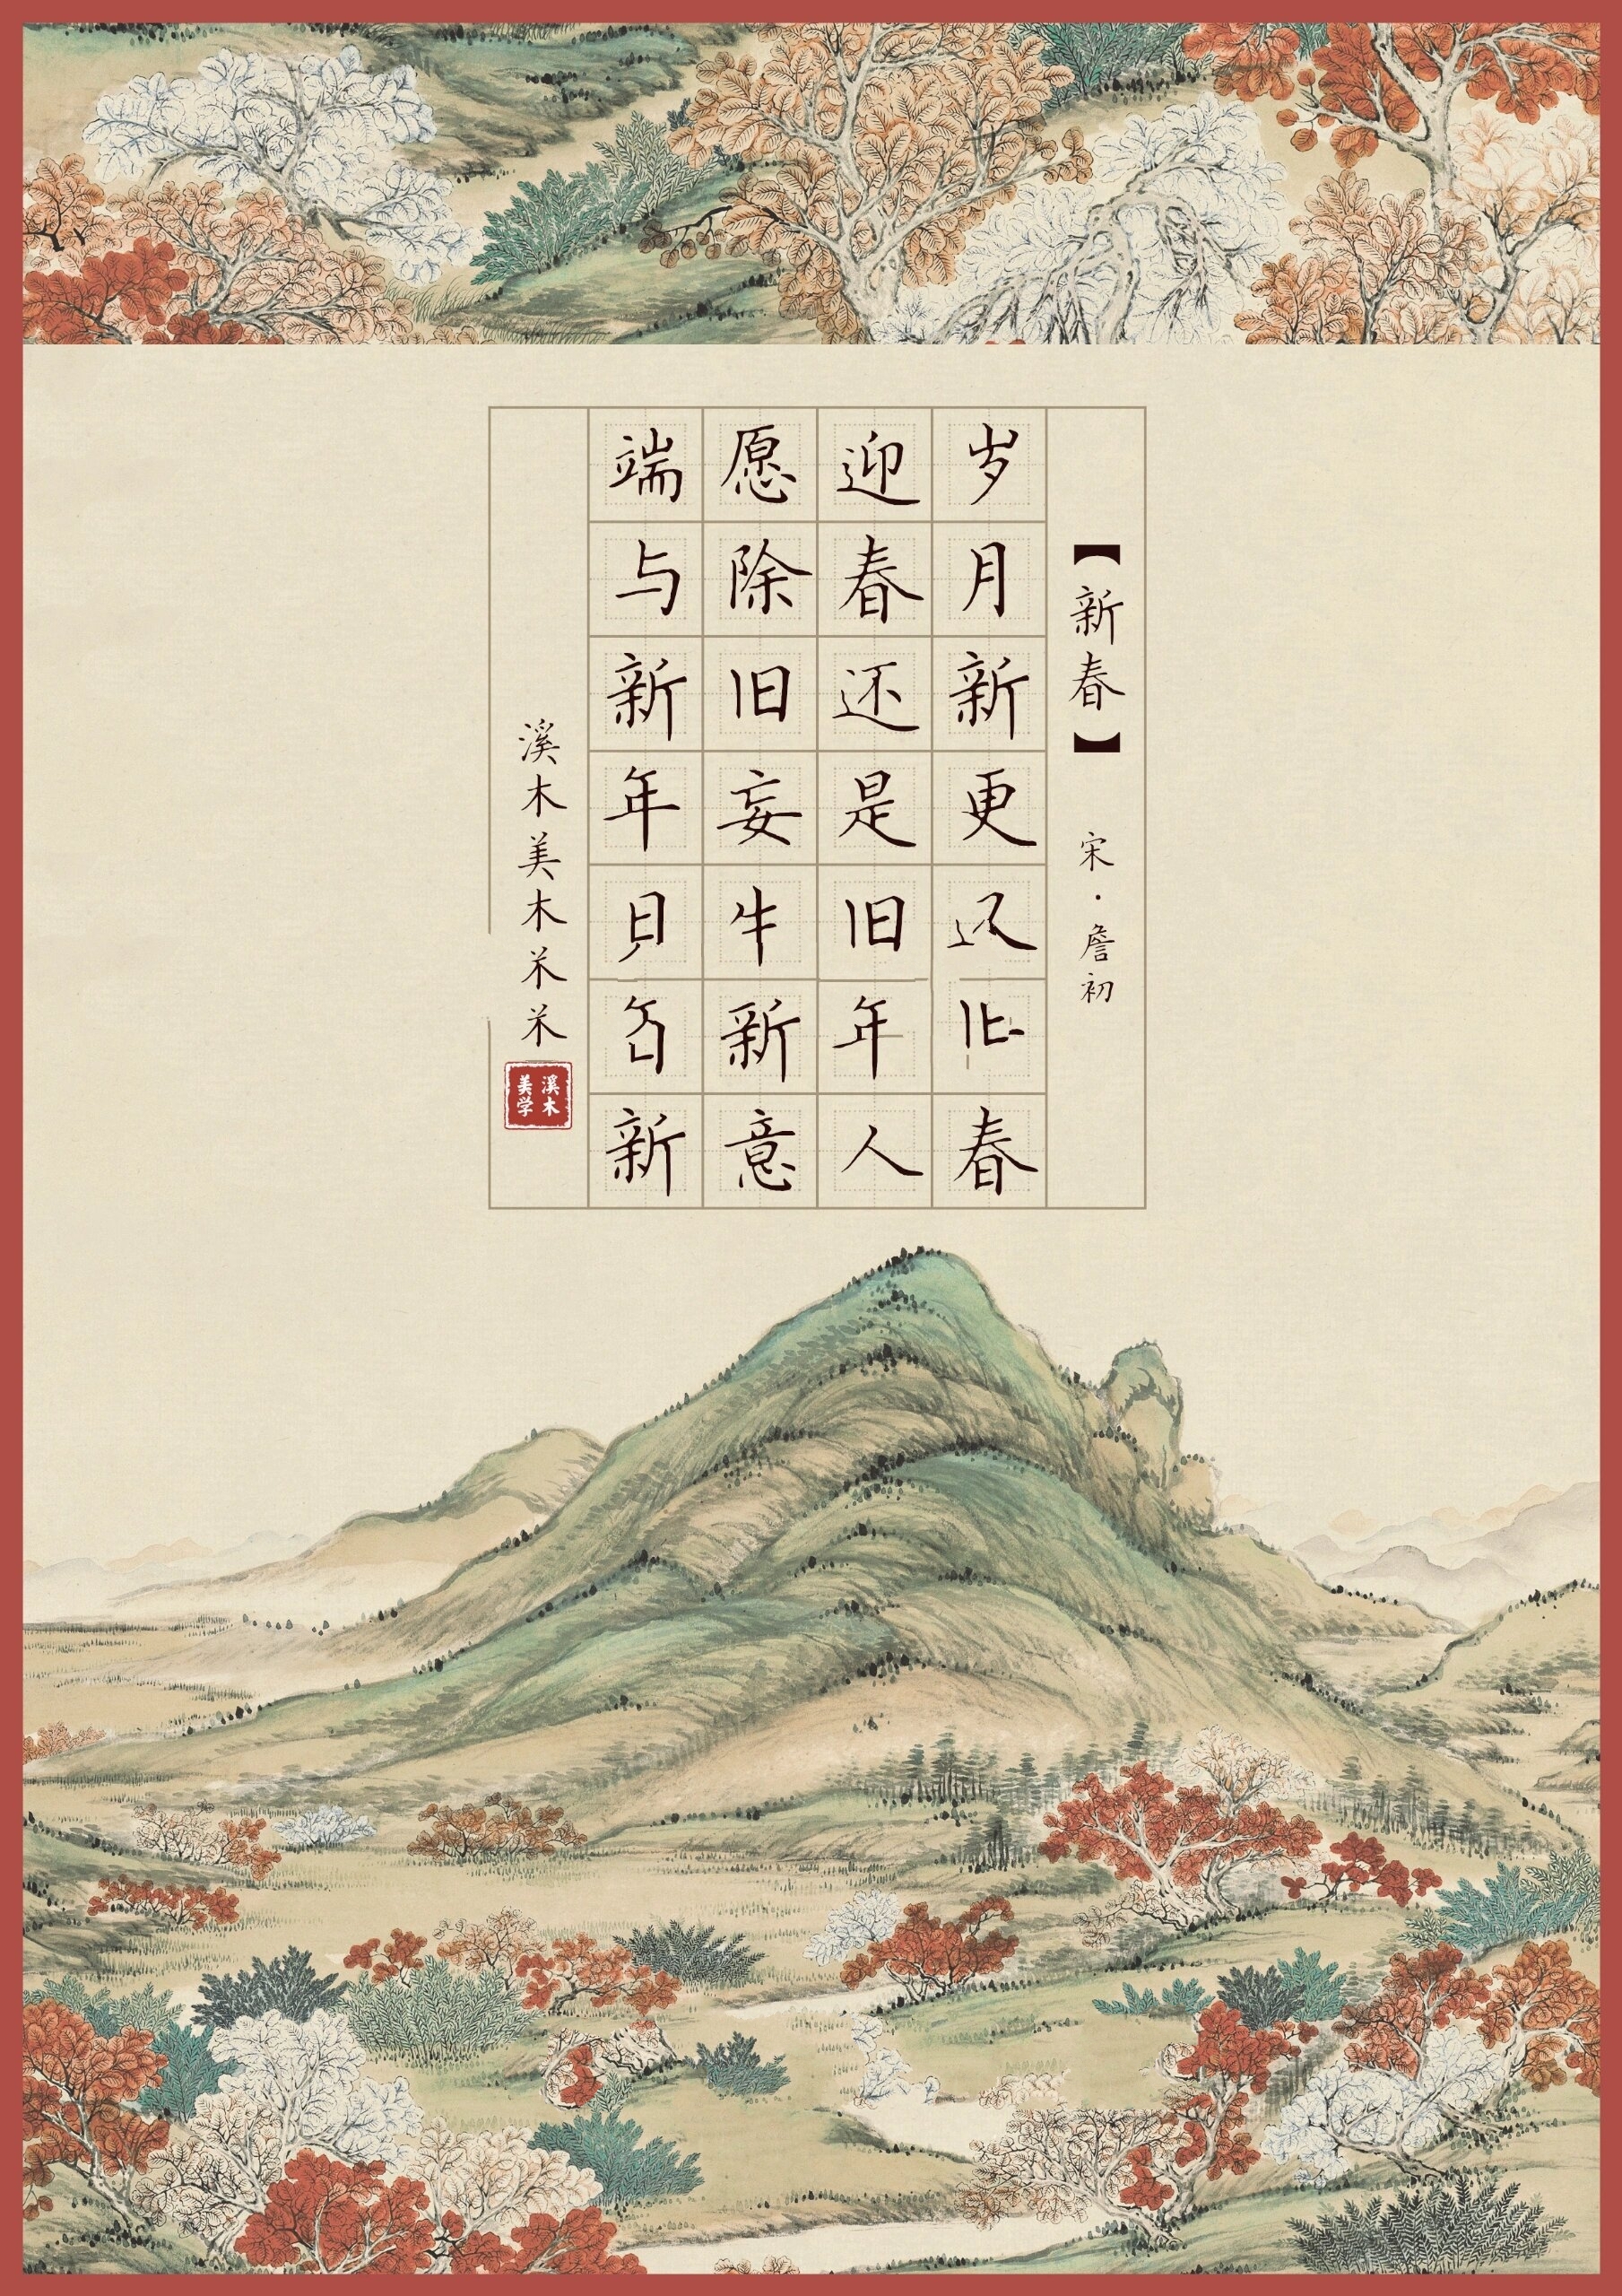 【新春】 宋·詹初
岁月新更春
迎春还是旧年人
愿除旧妄牛新意
端与新年新
溪木美木
溪木
美学